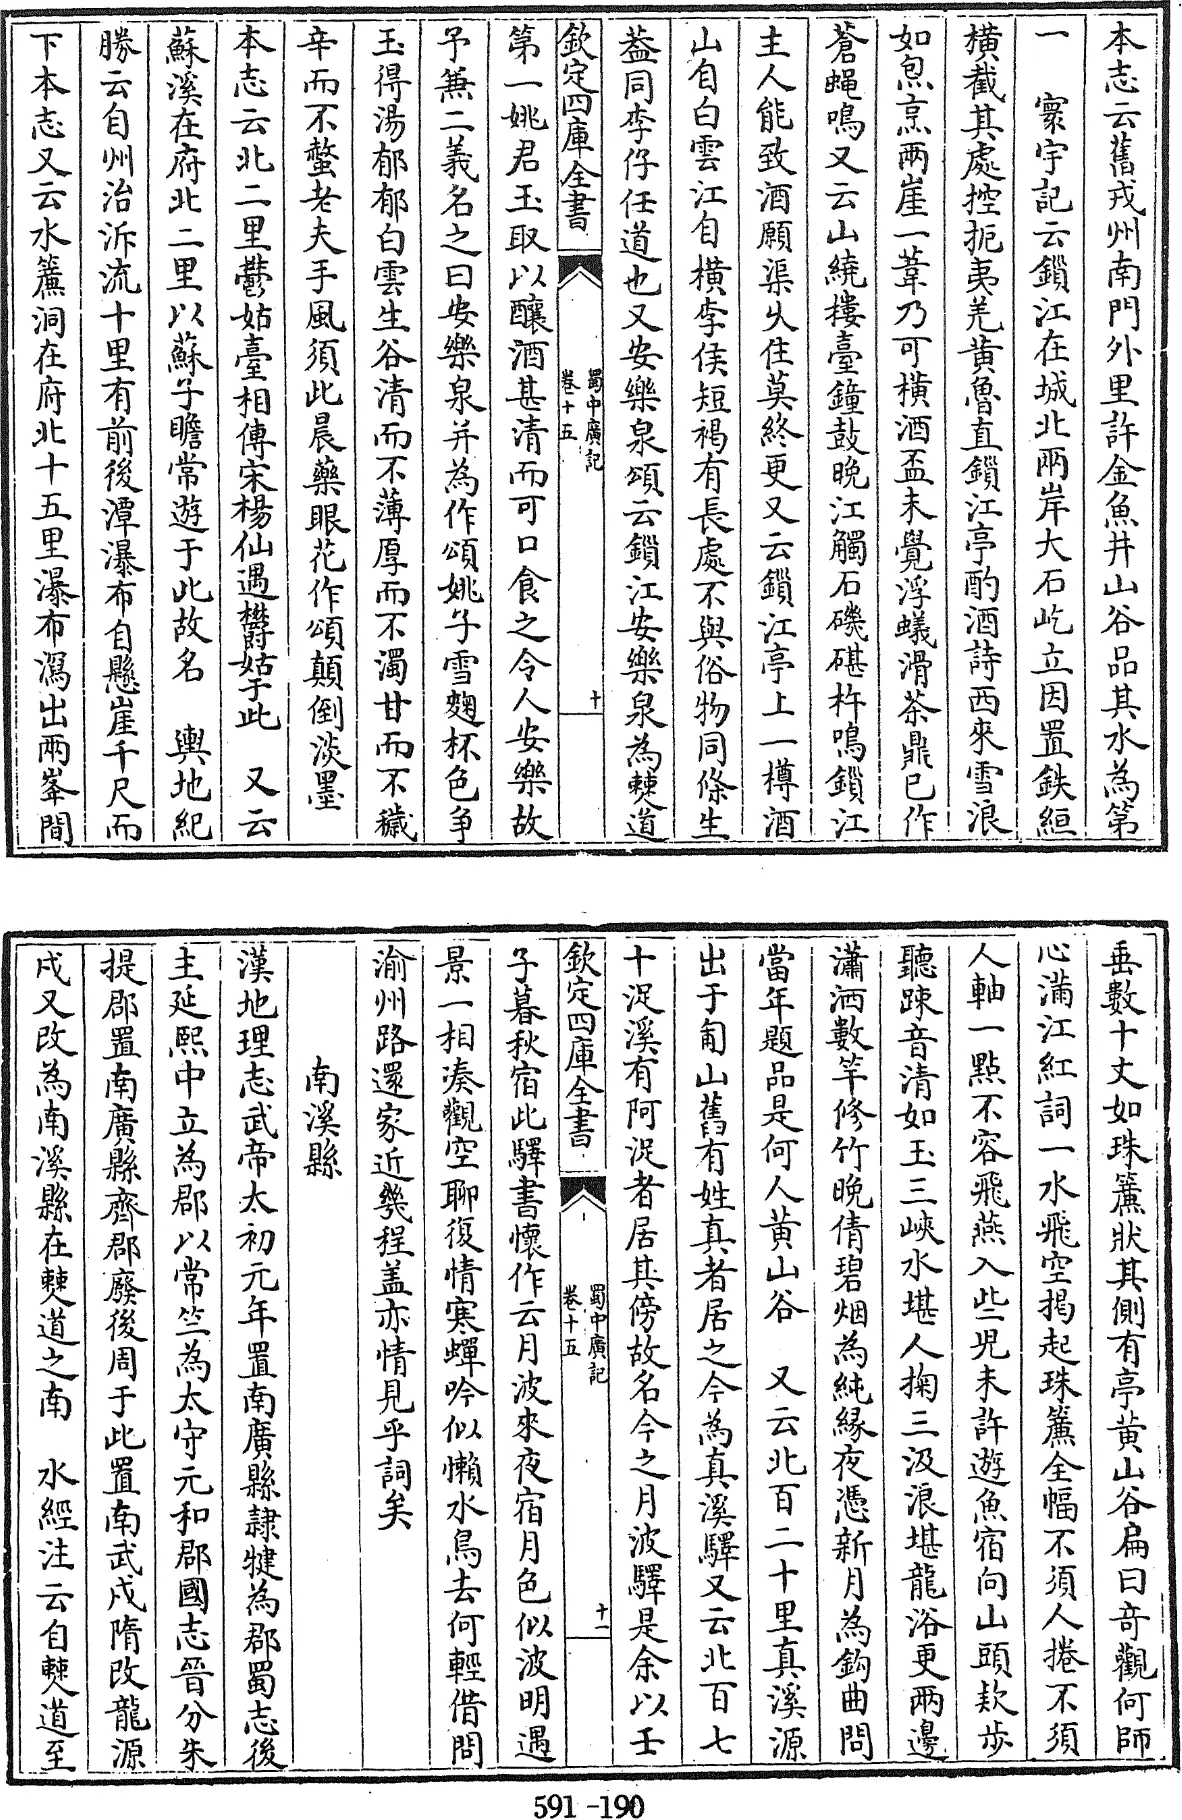 本志云舊戎州南門外里許金魚井山谷品其水為第
一　寰宇記云鎖江在城北兩岸大石屹立因置鉄絙
橫截其處控扼夷羌黄魯直鎖江亭酌酒詩西來雪浪
如炰烹兩崖一葦乃可橫酒盃未覺浮蟻滑茶鼎已作
蒼蠅鳴又云山繞樓臺鐘鼓晚江觸石磯碪杵鳴鎖江
主人能致酒願渠久住莫終更又云鎖江亭上一樽酒
山自白雲江自橫李侯短褐有長處不與俗物同條生
葢同李仔任道也又安樂泉頌云鎖江安樂泉為僰道
欽定四庫全書
蜀中廣記
卷十五
十
第一姚君玉取以釀酒甚清而可口食之令人安樂故
予兼二義名之曰安樂泉并為作頌姚子雪麴杯色争
玉得湯郁郁白雲生谷清而不薄厚而不濁甘而不穢
辛而不螫老夫手風須此晨藥眼花作頌顛倒淡墨
本志云北二里鬱姑臺相傳宋楊仙遇欝姑于此　又云
蘇溪在府北二里以蘇子瞻常遊于此故名　輿地紀
勝云自州治泝流十里有前後潭瀑布自懸崖千尺而
下本志又云水簾洞在府北十五里瀑布瀉出兩峯間
垂數十丈如珠簾狀其側有亭黄山谷扁曰竒觀何師
心滿江紅詞一水飛空揭起珠簾全幅不須人捲不須
人軸一點不容飛燕入些兒未許遊魚宿向山頭欵步
聽踈音清如玉三峽水堪人掬三汲浪堪龍浴更兩邊
瀟洒數竿修竹晚倩碧烟為純緣夜憑新月為鈎曲問
當年題品是何人黄山谷　又云北百二十里真溪源
出于甸山舊有姓真者居之今為真溪驛又云北百七
十浞溪有阿浞者居其傍故名今之月波驛是余以壬
欽定四庫全書
蜀中廣記
卷十五
十一
子暮秋宿此驛書懷作云月波來夜宿月色似波明遇
景一相湊觀空聊復情寒蟬吟似懶水鳥去何輕借問
渝州路還家近幾程盖亦情見乎詞矣
南溪縣
漢地理志武帝太初元年置南廣縣隷犍為郡蜀志後
主延熙中立為郡以常竺為太守元和郡國志晉分朱
提郡置南廣縣齊郡廢後周于此置南武戍隋改龍源
戍又改為南溪縣在僰道之南　水經注云自僰道至
591-190